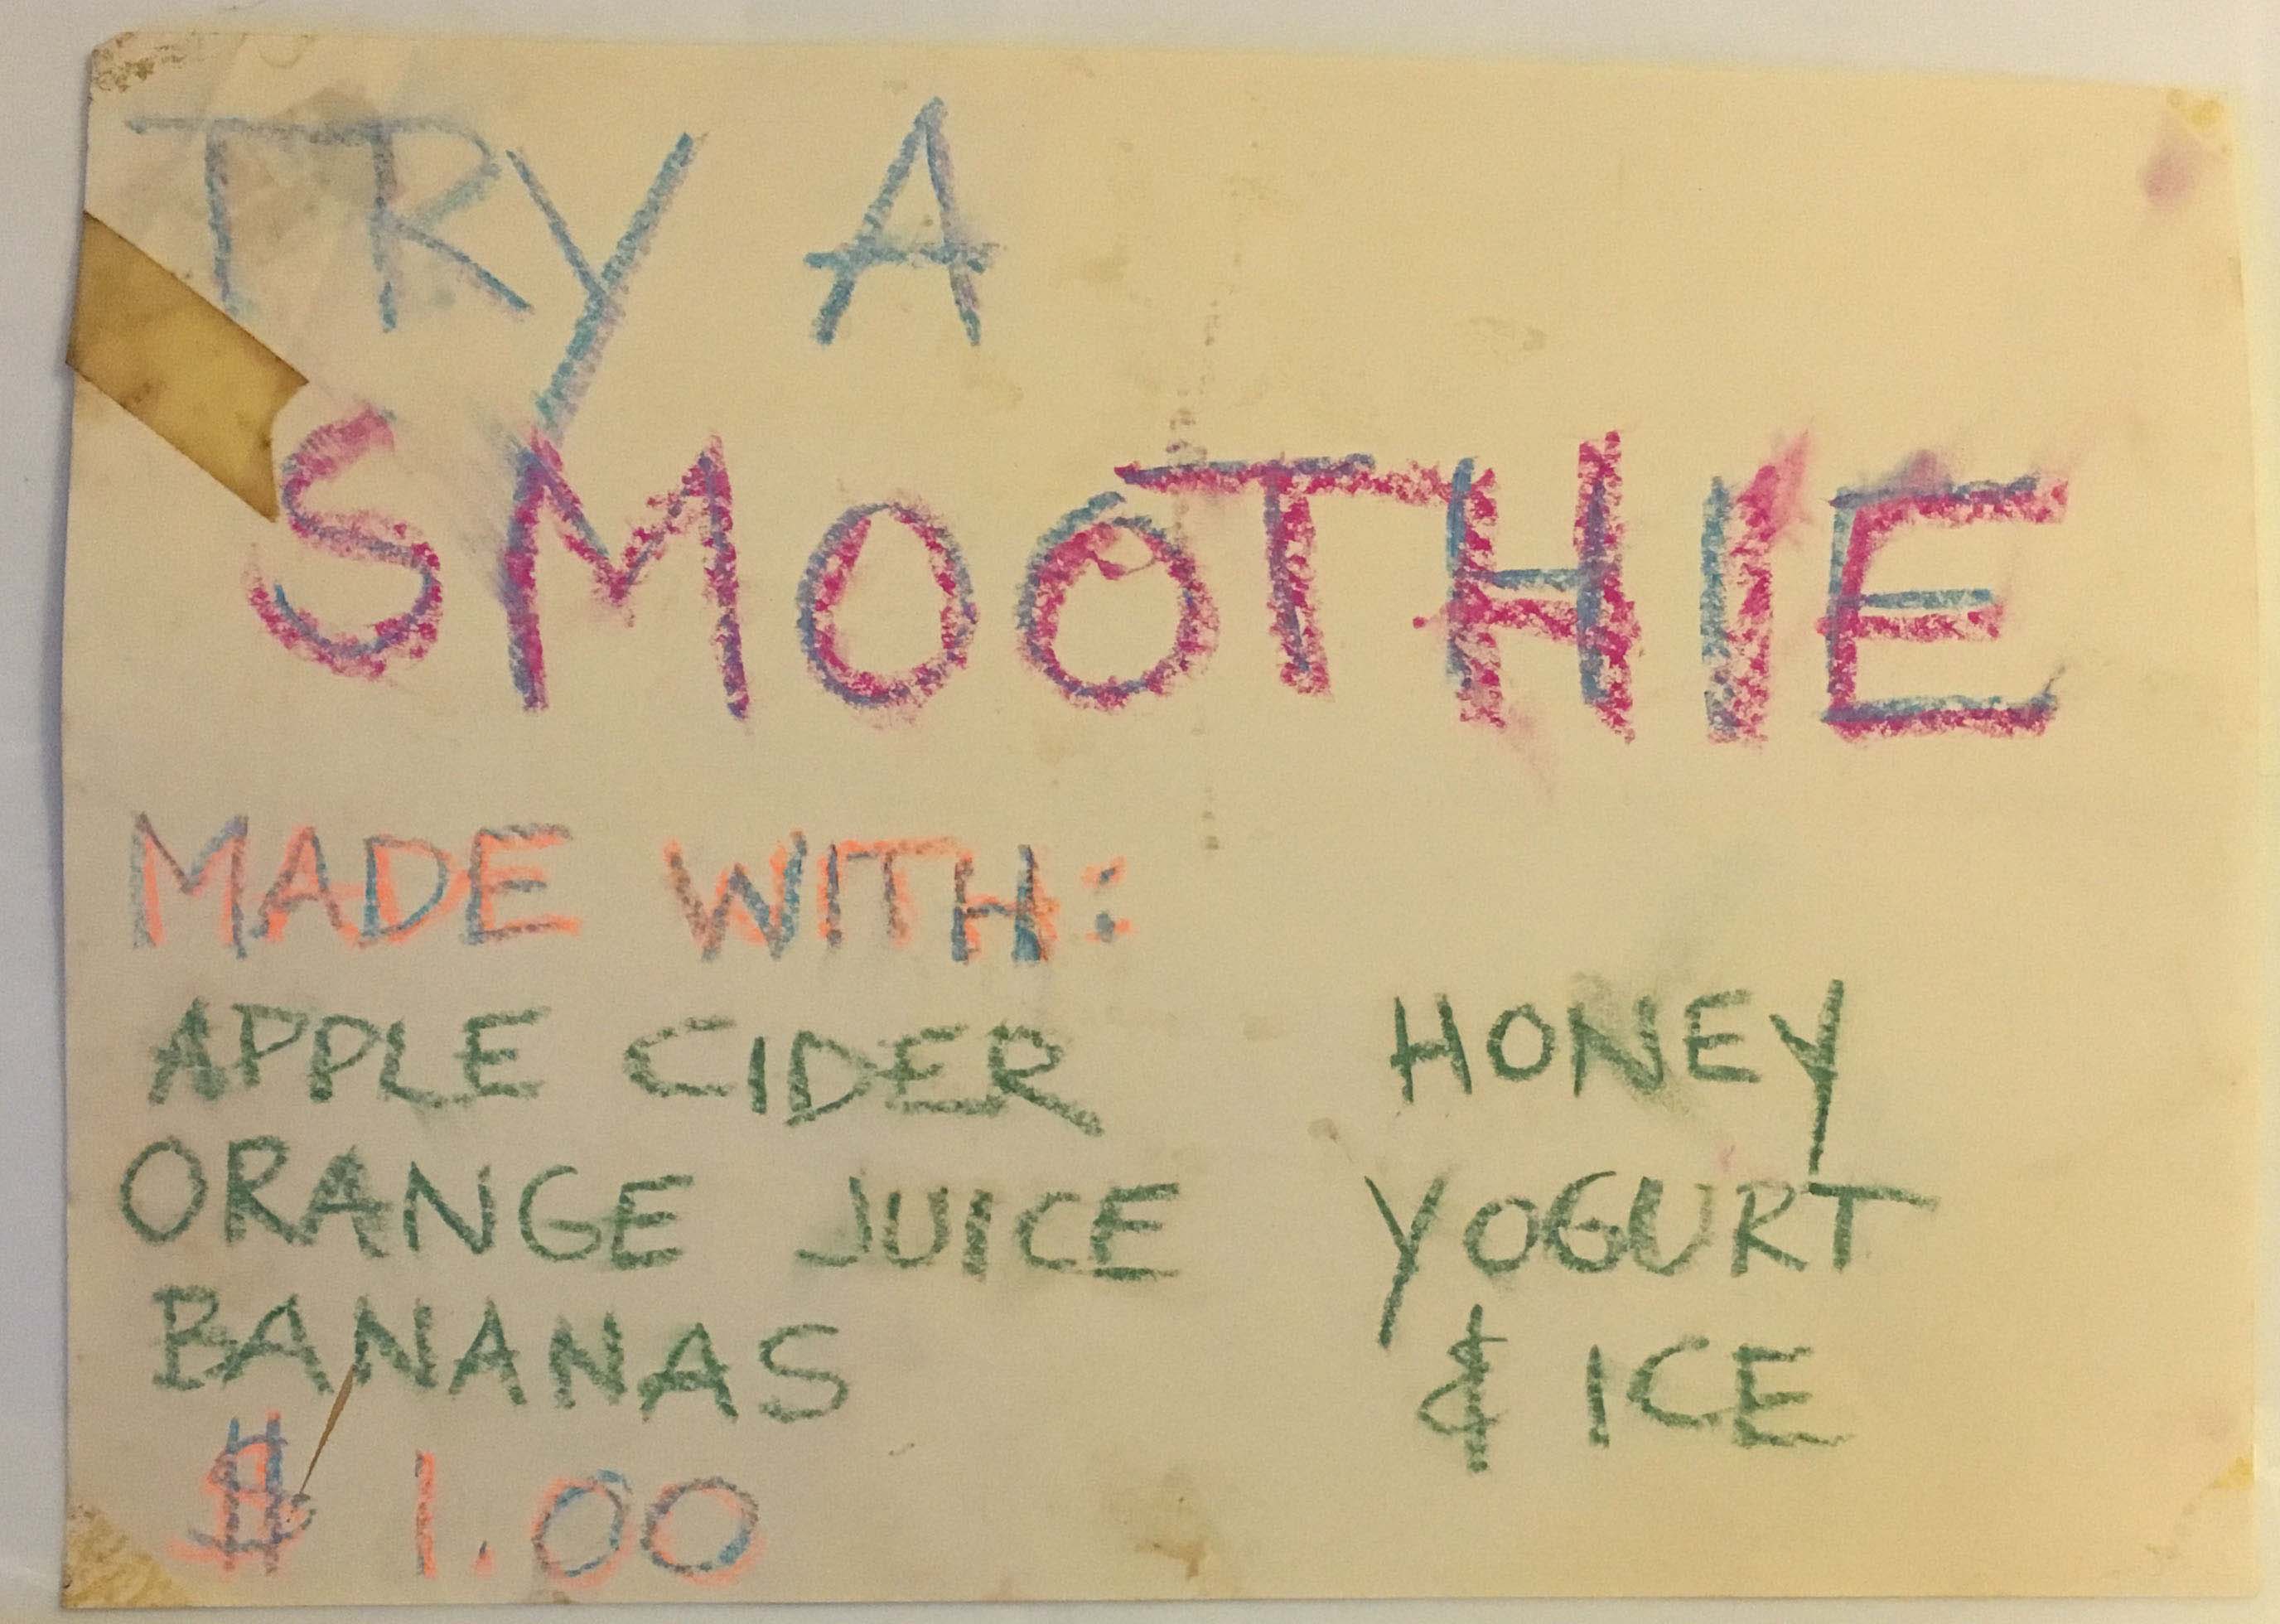 TRY A
SMOOTHIE
MADE WITH:
APPLE CIDER
ORANGE JUICE
BANANAS
$1.00
HONEY
YOGURT
& ICE